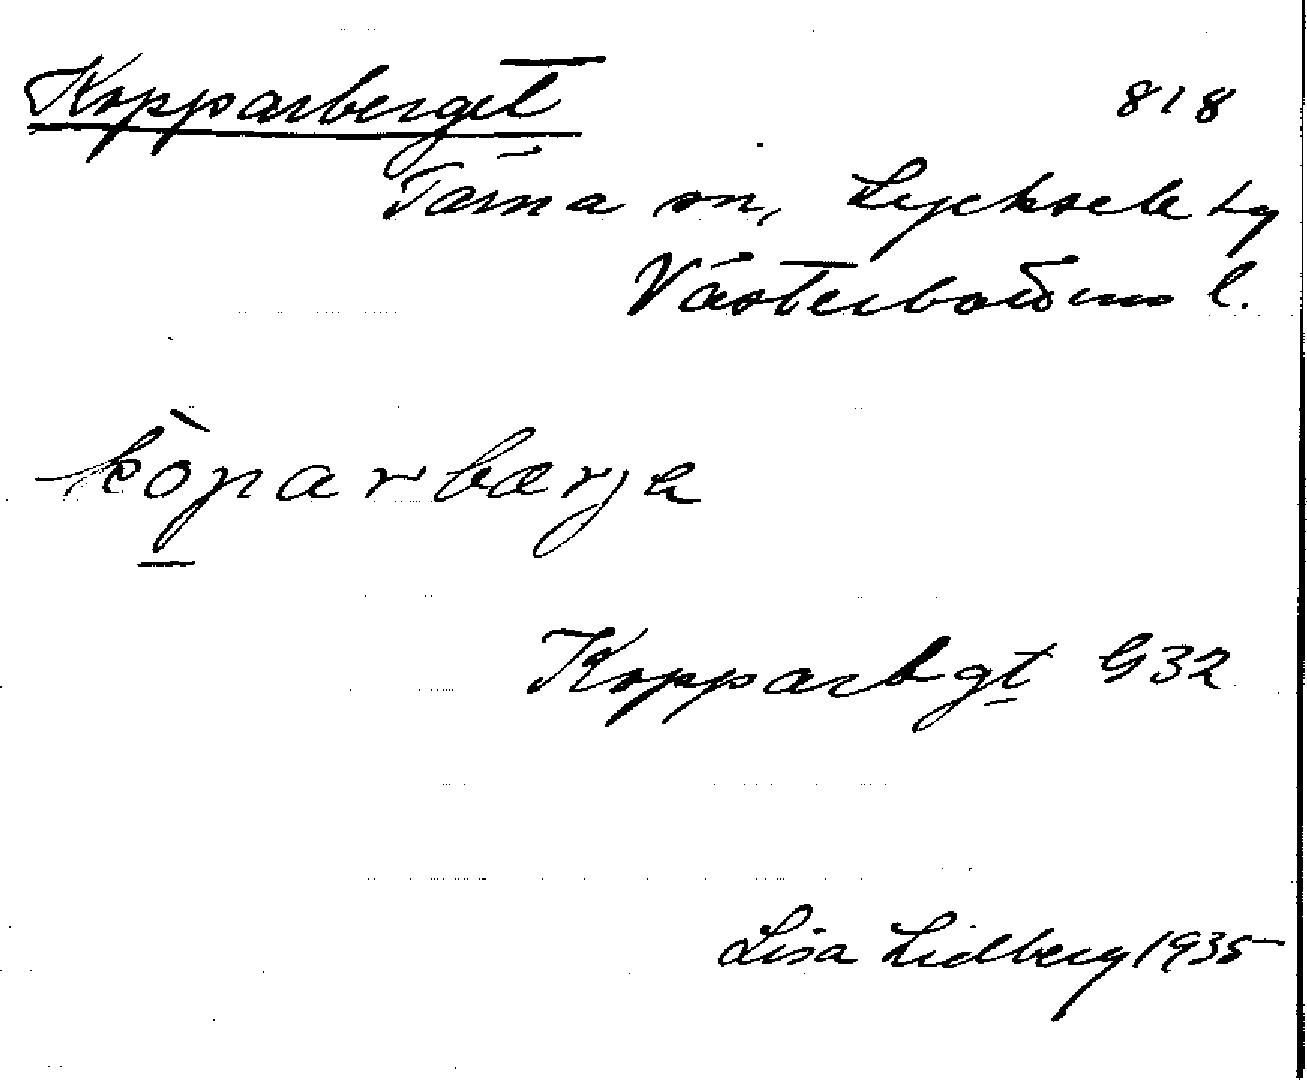 Kopparberget 818
Tärna sn, Lycksele tg
Västerbottens l.
kòparbærjə
Kopparbgt G32
Lisa Lidberg 1935